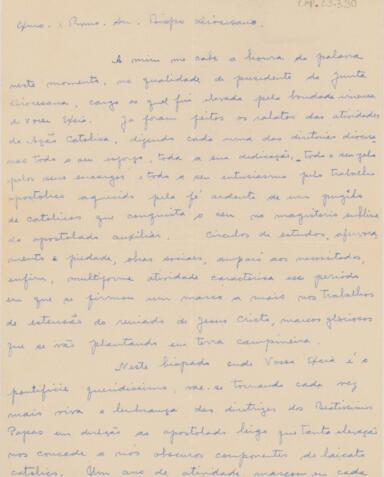 CAP. 23.3.30
Exmo. e Revmo. Snr. Bispo Diocesano.
A mim me cabe a honra da palavra
neste momento, na qualidade de presidente da Junta
Diocesana, cargo ao qual fui elevado pela bondade imensa
de Vossa Excia. Já foram feitos os relatos das atividades
da Ação Catolica, dizendo cada uma das diretorias diocesa-
nas todo o seu esforço, toda a sua dedicação, todo o seu zelo
pelos seus encargos e todo o seu entusiasmo pelo trabalho
apostolico aquecido pela fé ardente de um pugilo
de catolicos que conquista o ceu no magisterio sublime
do apostolado auxiliar. Circulos de estudos, afervora-
mento e piedade, obras sociais, amparo aos necessitados,
enfim, multiforme atividade caracterisa esse periodo
em que se firmou um marco a mais nos trabalhos
de extensão do reinado de Jesus Cristo, marcos gloriosos
que se vão plantando em terra campineira.
Neste bispado onde Vossa Excia é o
pontifice queridissimo, vae-se tornando cada vez
mais viva a lembrança das diretrizes dos Beatissimos
Papas em direção ao apostolado leigo que tanta elevação
nos concede a nós obscuros componentes do laicato
catolico. Um ano de atividade, marcou em cada